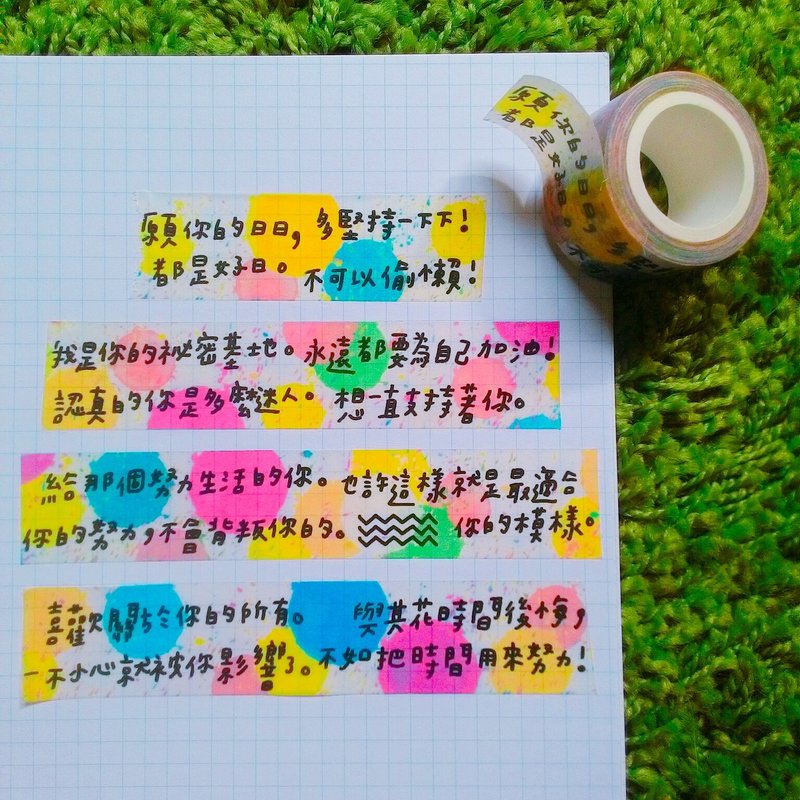 願你的日日，
都是好日。
願你的日日，
都是好日。
多堅持一下下！
不可以偷懶！
我是你的祕密基地。
認真的你是多麼迷人。
永遠都要為自己加油！
想一直支持著你。
給那個努力生活的你。
你的努力，不會背叛你的。
也許這樣就是最適合
你的模樣。
喜歡關於你的所有。
一不小心就被你影響了。
與其花時間後悔，
不如把時間用來努力！